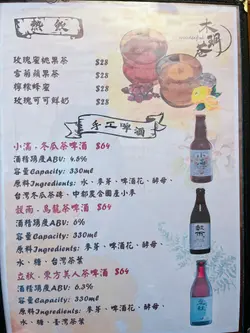 熱飲
木鍋
玫瑰蜜桃果茶 $28
富翁蘋果茶 $28
檸檬蜂蜜 $28
玫瑰可可鮮奶 $28
手工啤酒
小滿、冬瓜茶啤酒 $64
酒精踢度ABV: 4.6%
容量Capacity: 330ml
原料Ingredients: 水、麥芽、啤酒花、酵母、
台灣冬瓜茶磚、中都農会國產小麥
穀雨、烏龍茶啤酒 $64
酒精踢度ABV: 6%
容量Capacity: 330ml
原料Ingredients: 麥芽、啤酒花、酵母、
水、糖、台灣茶葉
立秋、東方美人茶啤酒 $64
酒精踢度ABV: 6.3%
容量Capacity: 330ml
原料Ingredients: 麥芽、啤酒花、酵母、
水、糖、臺灣茶葉